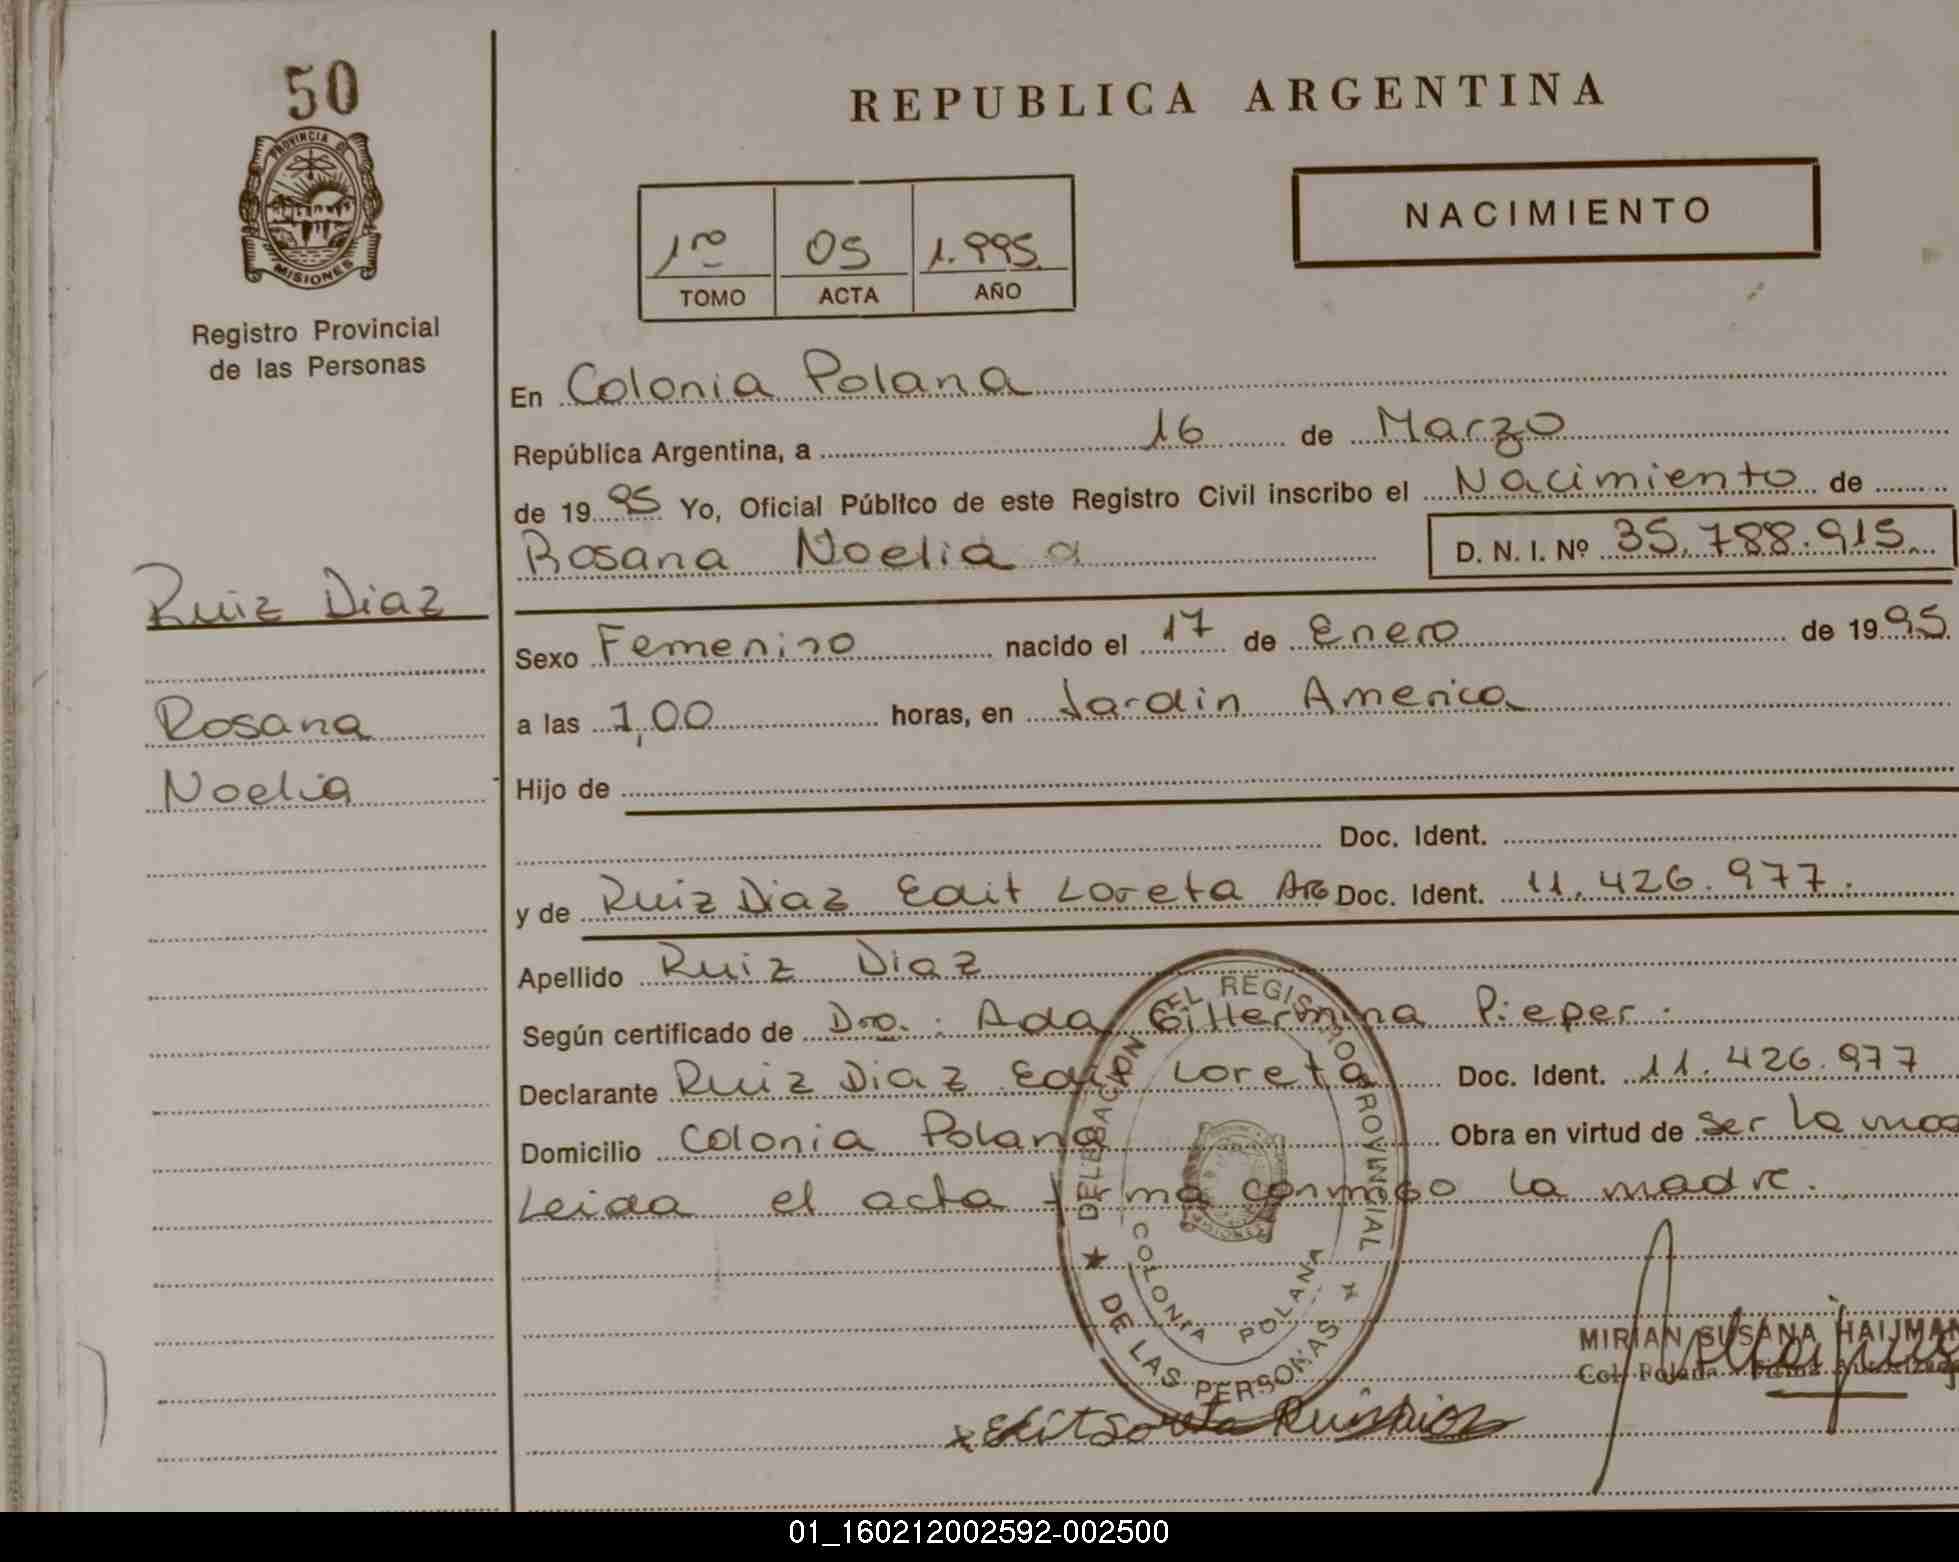 50
PROVINCIA DE
MISIONES
Registro Provincial
de las Personas
Ruiz Diaz
Rosana
Noelia
REPUBLICA ARGENTINA
1ro 05 1.995
TOMO ACTA AÑO
NACIMIENTO
En Colonia Polana
República Argentina, a 16 de Marzo
de 19 95 Yo, Oficial Público de este Registro Civil inscribo el Nacimiento de
Rosana Noelia a D. N. I. Nº 35.788.915
Sexo Femenino nacido el 17 de Enero de 19 95
a las 1,00 horas, en Jardin America
Hijo de
Doc. Ident.
y de Ruiz Diaz Edit Loreta Arg Doc. Ident. 11.426.977.
Apellido Ruiz Diaz
Según certificado de Dra. : Ada Gillermina Pieper.
Declarante Ruiz Diaz Edit Loreta Doc. Ident. 11.426.977
Domicilio Colonia Polana Obra en virtud de ser la
Leida el acta firma conmigo la madre.
DELEGACION DEL REGISTRO PROVINCIAL
DE LAS PERSONAS
COLONIA POLANA
MIRIAN SUSANA HAIJMAN
Col. Polana
01_160212002592-002500